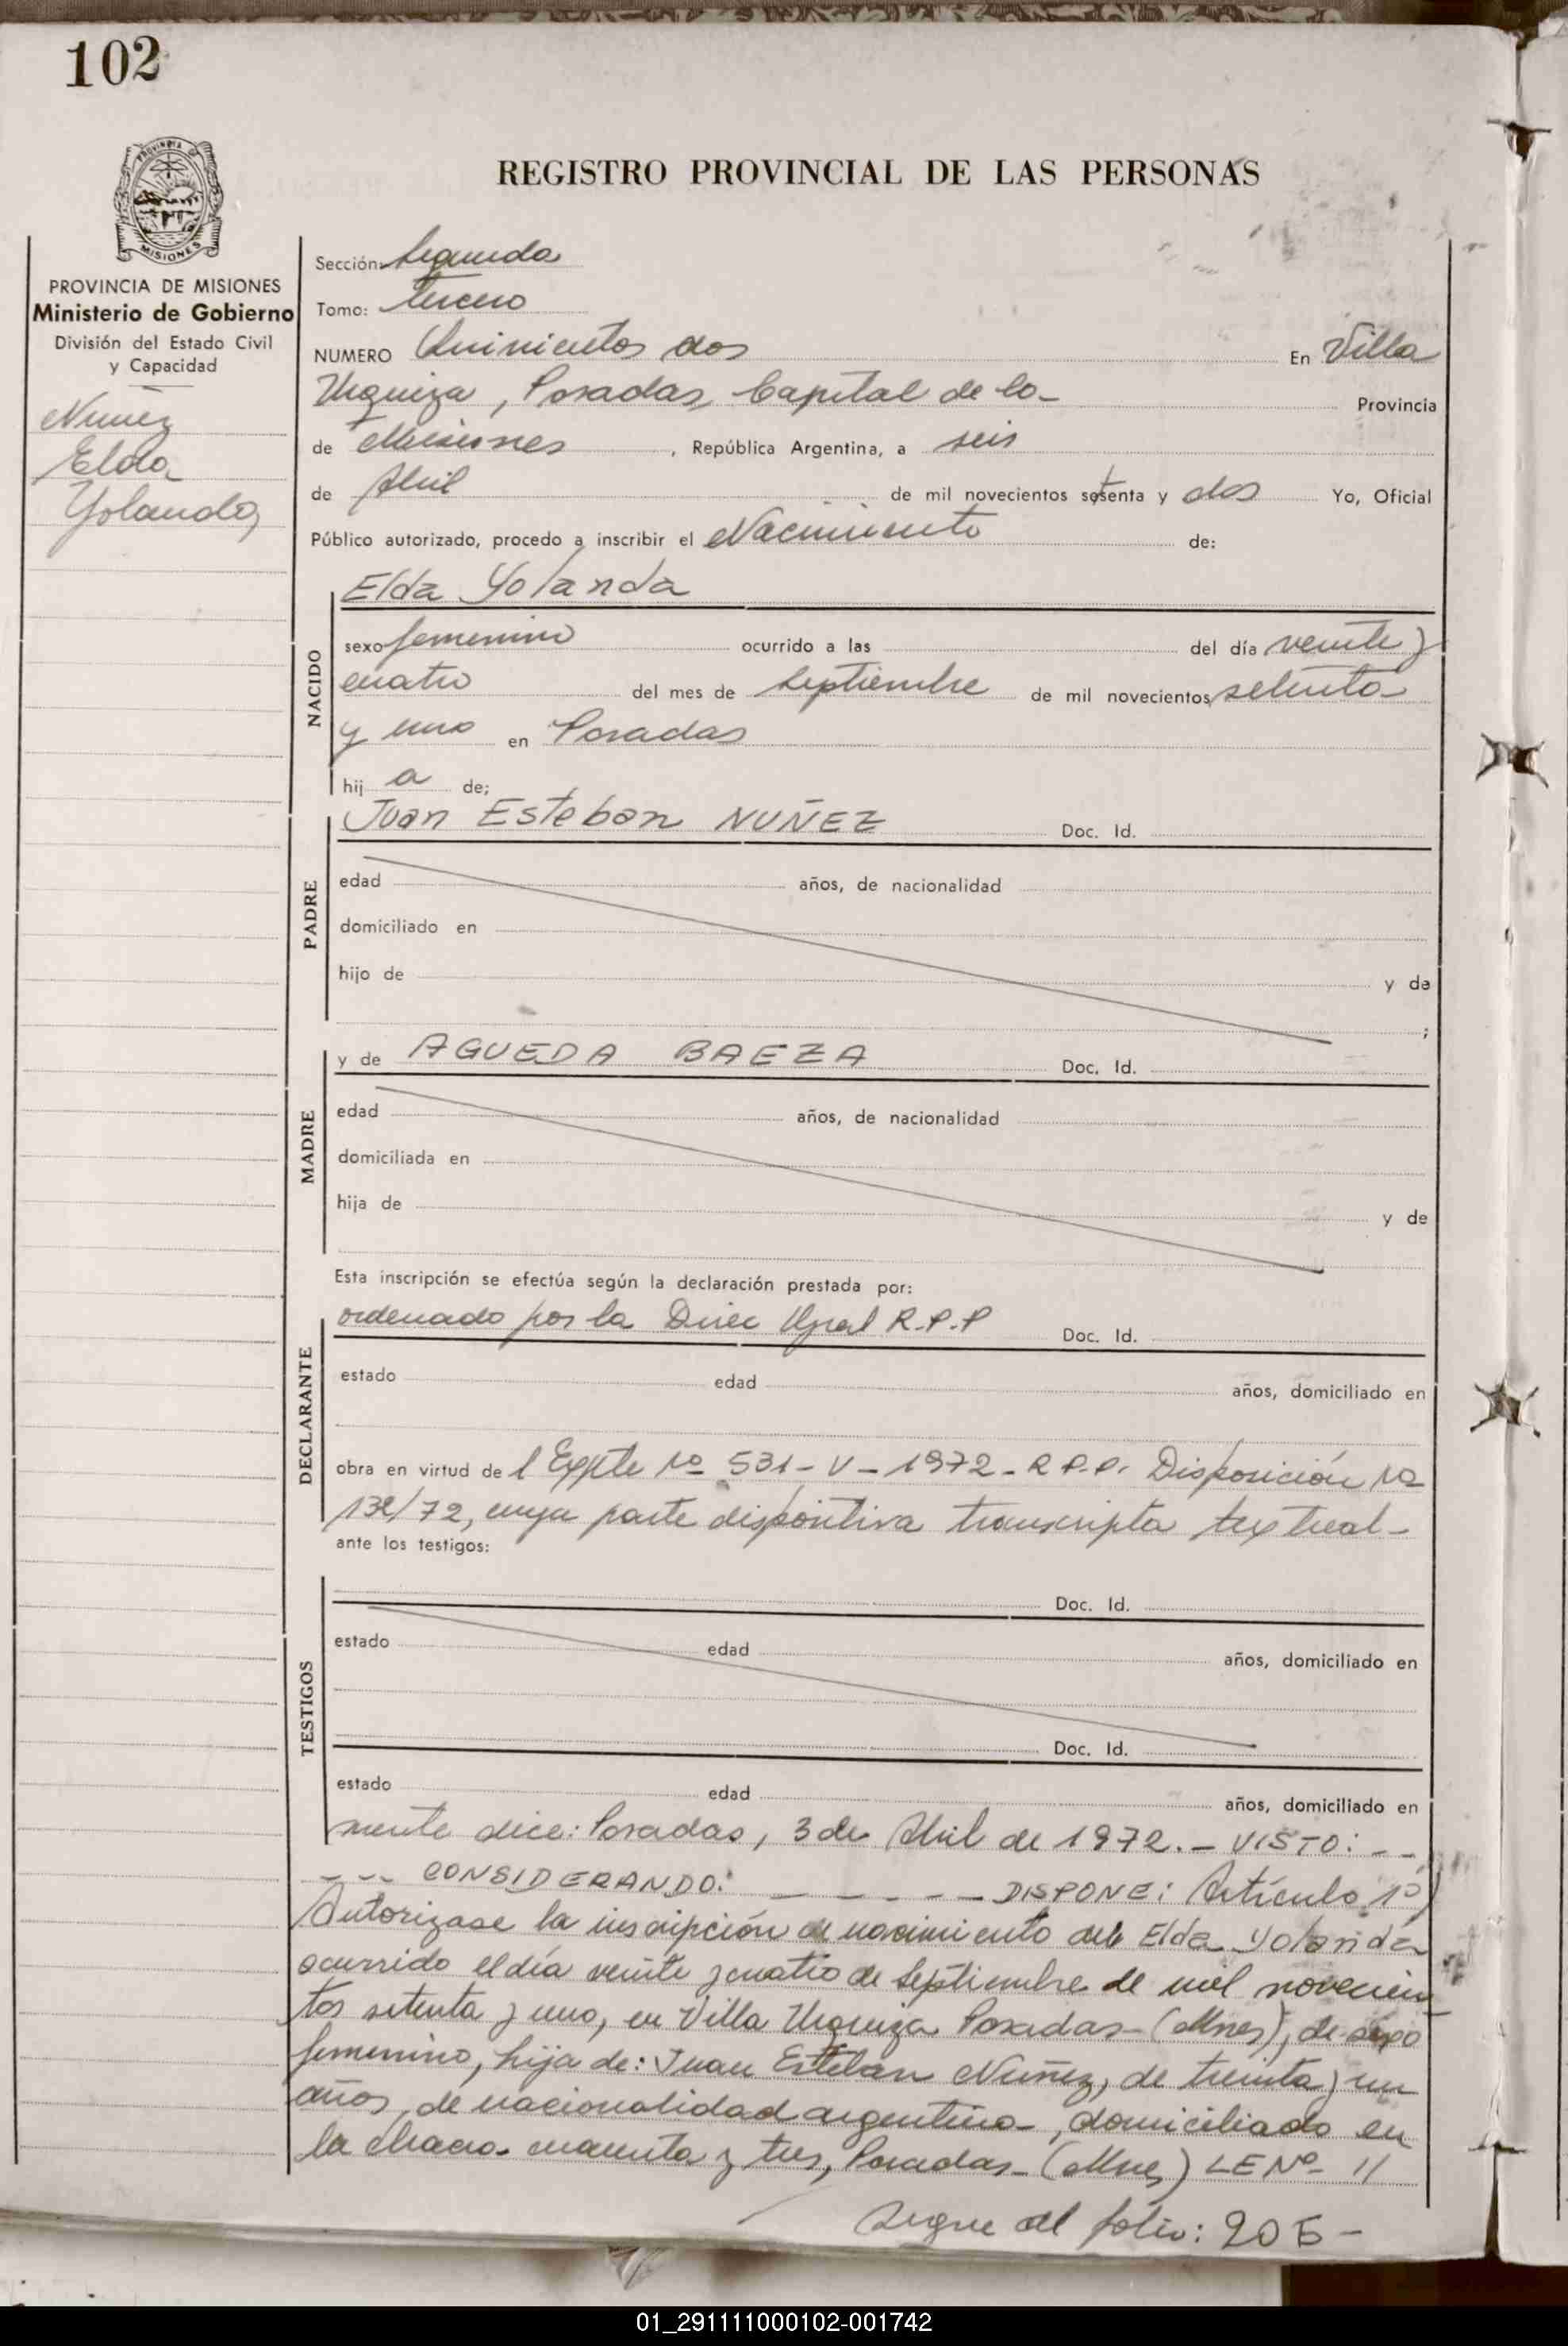 102
REGISTRO PROVINCIAL DE LAS PERSONAS
PROVINCIA
MISIONES
PROVINCIA DE MISIONES
Ministerio de Gobierno
División del Estado Civil
y Capacidad
Nuñez
Elda
Yolanda
Sección: Segunda
Tomo: tercero
NUMERO Quinientos dos En Villa
Urquiza, Posadas, Capital de la Provincia
de Misiones, República Argentina, a seis
de Abril de mil novecientos setenta y dos Yo, Oficial
Público autorizado, procedo a inscribir el Nacimiento de:
NACIDO
Elda Yolanda
sexo femenino ocurrido a las del día veinte y
cuatro del mes de Septiembre de mil novecientos setenta
y uno en Posadas
hij a de;
PADRE
Juan Esteban NUÑEZ Doc. Id.
edad años, de nacionalidad
domiciliado en
hijo de y de
;
MADRE
y de AGUEDA BAEZA Doc. Id.
edad años, de nacionalidad
domiciliada en
hija de y de
Esta inscripción se efectúa según la declaración prestada por:
DECLARANTE
ordenado por la Direc Gral R.P.P Doc. Id.
estado edad años, domiciliado en
obra en virtud de l Expte No 531-V-1972-R.P.P. Disposición No
132/72, cuya parte dispositiva transcripta textual-
ante los testigos:
TESTIGOS
Doc. Id.
estado edad años, domiciliado en
Doc. Id.
estado edad años, domiciliado en
mente dice: Posadas, 3 de Abril de 1972.- VISTO: - -
- - - CONSIDERANDO: - - - - - DISPONE: Artículo 1º)
Autorizase la inscripción de nacimiento de Elda Yolanda
ocurrido el día veinte y cuatro de Septiembre de mil novecien
tos setenta y uno, en Villa Urquiza Posadas-(Mnes), de sexo
femenino, hija de: Juan Esteban Nuñez, de treinta y un
años, de nacionalidad argentina-, domiciliado en
la chacra cuarenta y tres, Posadas-(Mnes) LE Nº- //
Sigue al folio: 205-
01_291111000102-001742